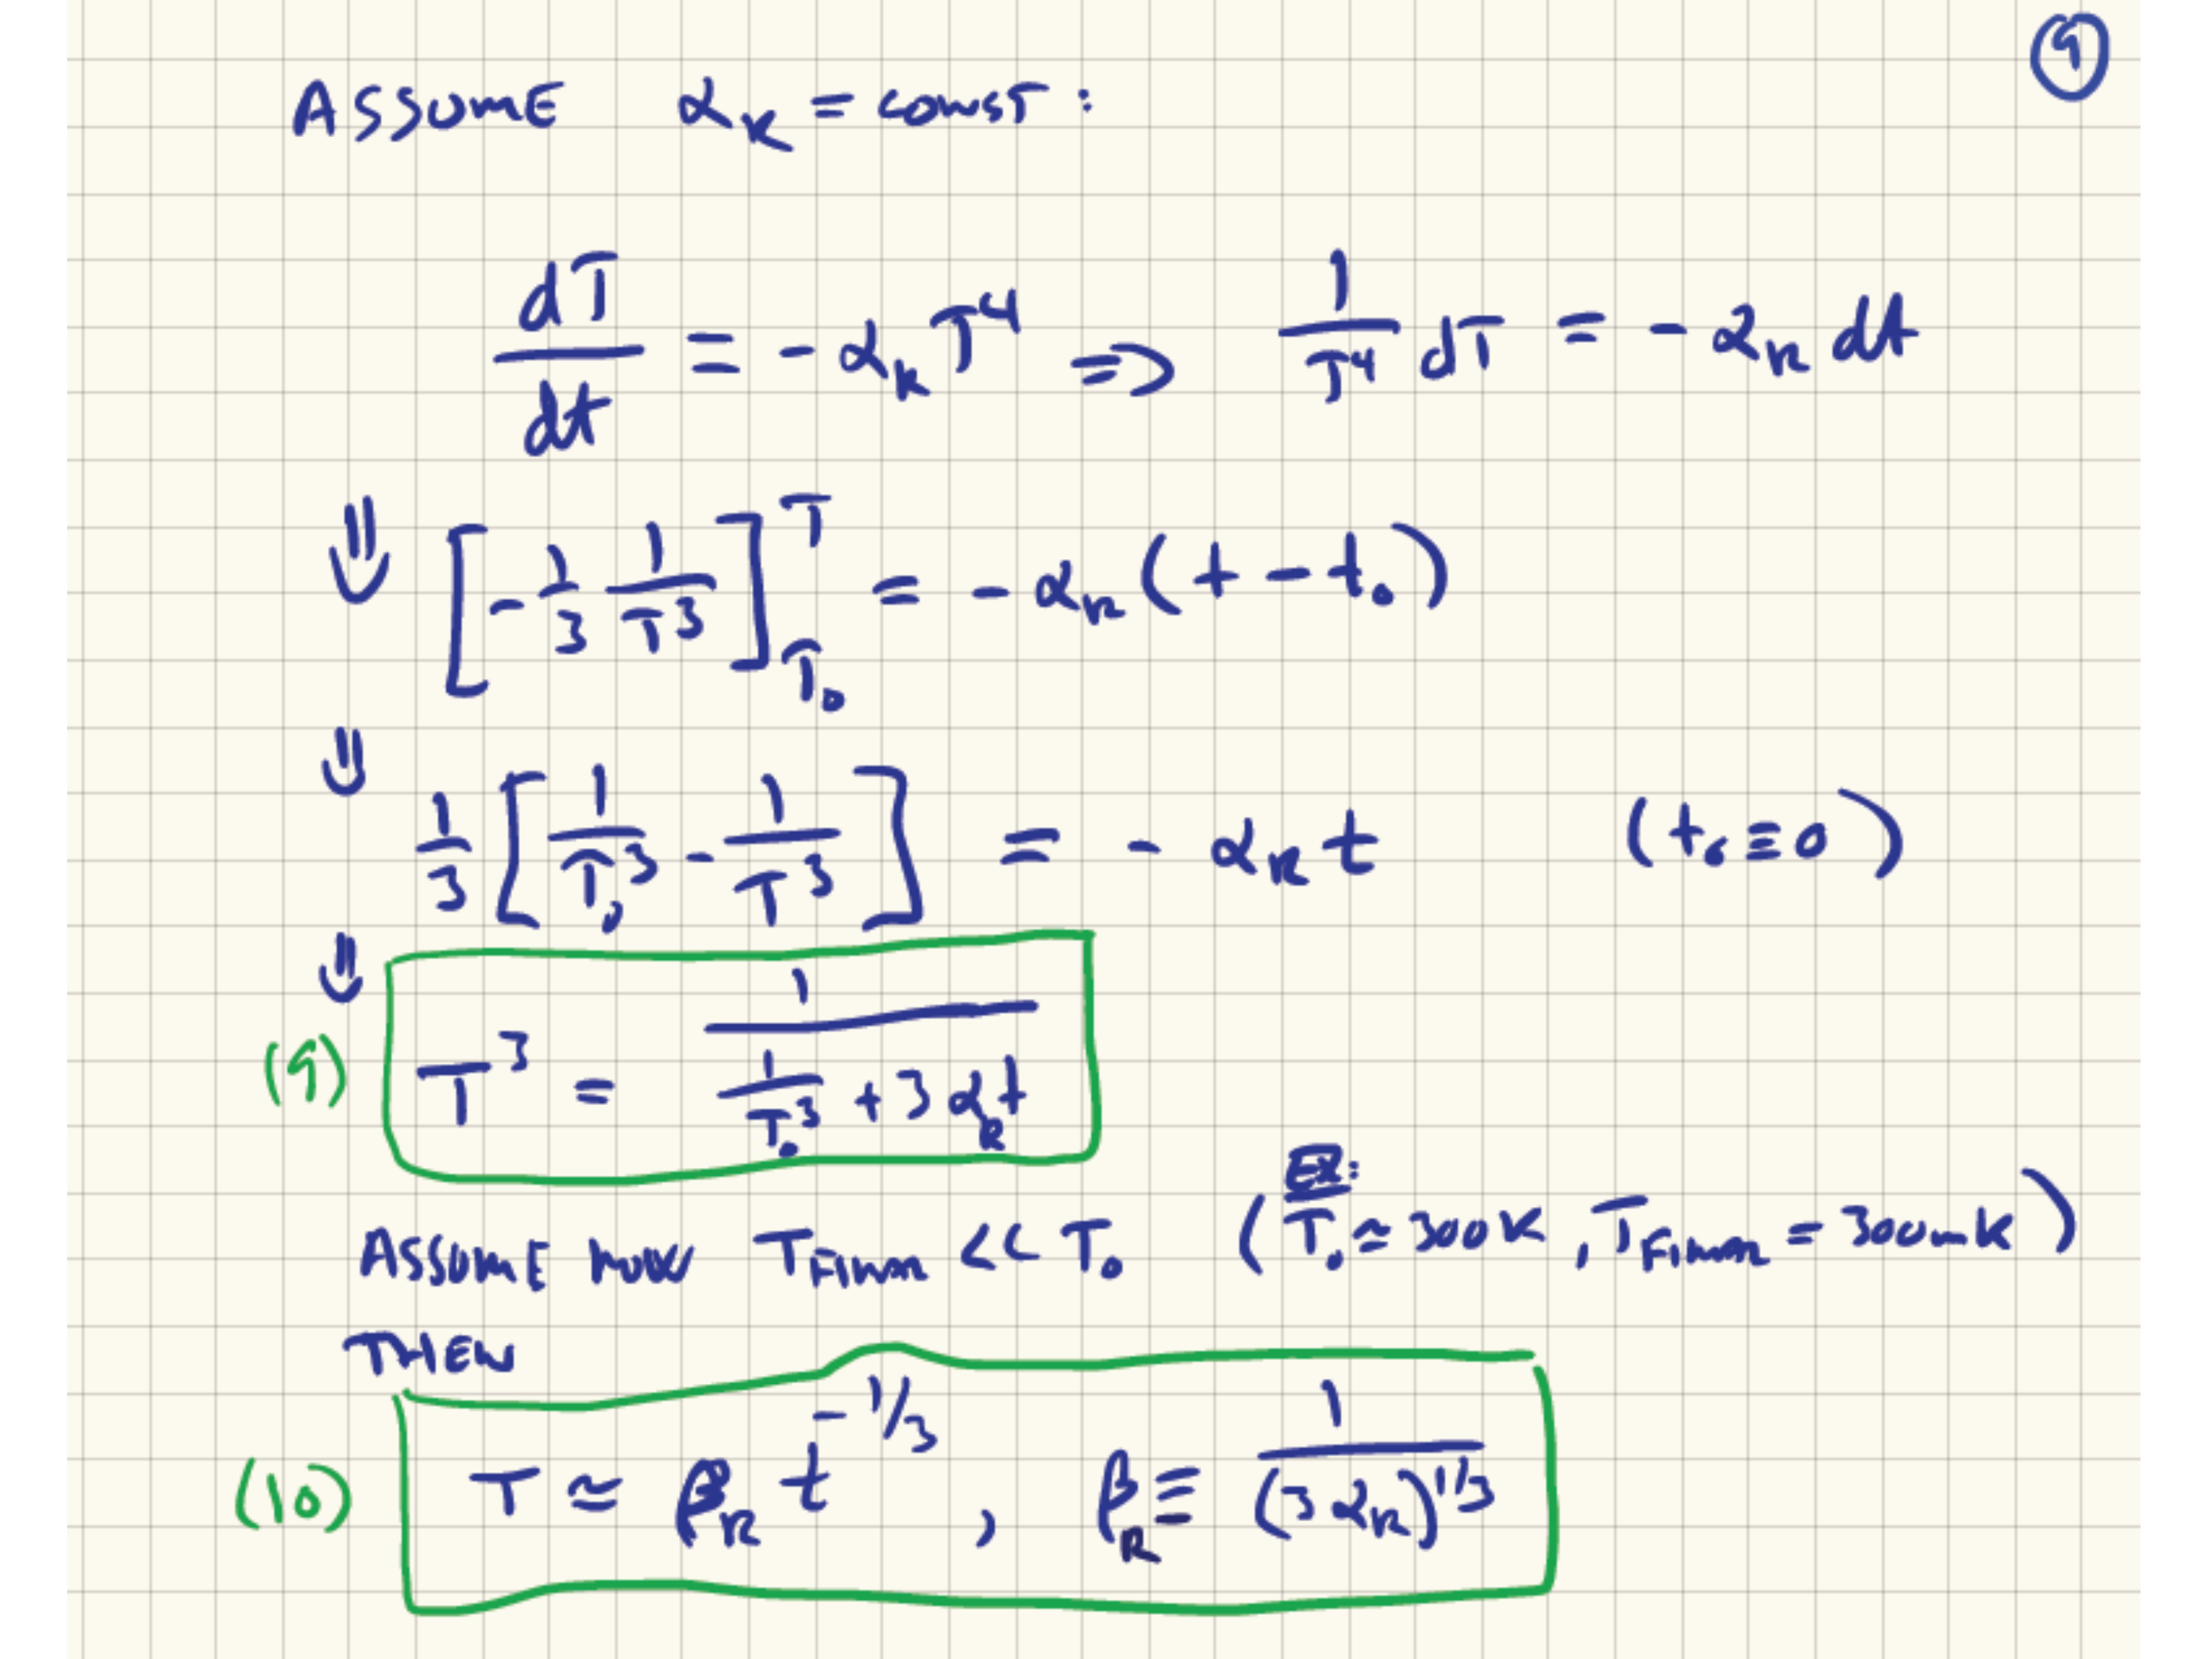 9
ASSUME α_R = CONST:
dT/dt = - α_R T^4 ⇒ 1/T^4 dT = - α_R dt
⇓ [-1/3 1/T^3]_{T_0}^{T} = - α_R (t - t_0)
⇓ 1/3 [1/T_0^3 - 1/T^3] = - α_R t (t_0 ≡ 0)
⇓
(9) T^3 = 1/(1/T_0^3 + 3 α_R t)
ASSUME NOW T_FINAL << T_0 (EX: T_0 ≈ 300K, T_FINAL = 300mK)
THEN
(10) T ≈ β_R t^{-1/3} , β_R ≡ 1/(3 α_R)^{1/3}